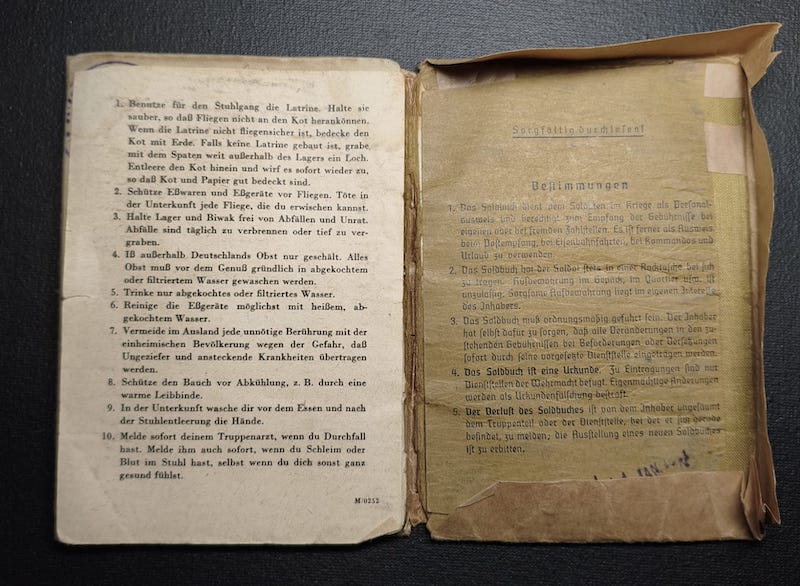 1. Benutze für den Stuhlgang die Latrine. Halte sie
sauber, so daß Fliegen nicht an den Kot herankönnen.
Wenn die Latrine nicht fliegensicher ist, bedecke den
Kot mit Erde. Falls keine Latrine gebaut ist, grabe
mit dem Spaten weit außerhalb des Lagers ein Loch.
Entleere den Kot hinein und wirf es sofort wieder zu,
so daß Kot und Papier gut bedeckt sind.
2. Schütze Eßwaren und Eßgeräte vor Fliegen. Töte in
der Unterkunft jede Fliege, die du erwischen kannst.
3. Halte Lager und Biwak frei von Abfällen und Unrat.
Abfälle sind täglich zu verbrennen oder tief zu ver-
graben.
4. Iß außerhalb Deutschlands Obst nur geschält. Alles
Obst muß vor dem Genuß gründlich in abgekochtem
oder filtriertem Wasser gewaschen werden.
5. Trinke nur abgekochtes oder filtriertes Wasser.
6. Reinige die Eßgeräte möglichst mit heißem, ab-
gekochtem Wasser.
7. Vermeide im Ausland jede unnötige Berührung mit der
einheimischen Bevölkerung wegen der Gefahr, daß
Ungeziefer und ansteckende Krankheiten übertragen
werden.
8. Schütze den Bauch vor Abkühlung, z. B. durch eine
warme Leibbinde.
9. In der Unterkunft wasche dir vor dem Essen und nach
der Stuhlentleerung die Hände.
10. Melde sofort deinem Truppenarzt, wenn du Durchfall
hast. Melde ihm auch sofort, wenn du Schleim oder
Blut im Stuhl hast, selbst wenn du dich sonst ganz
gesund fühlst.
M/0252
Sorgfältig durchlesen!
Bestimmungen
1. Das Soldbuch dient dem Soldaten im Kriege als Personal-
ausweis und berechtigt zum Empfang der Gebührnisse bei
eigenen oder bei fremden Zahlstellen. Es ist ferner als Ausweis
beim Postempfang, bei Eisenbahnfahrten, bei Kommandos und
Urlaub zu verwenden.
2. Das Soldbuch hat der Soldat stets in einer Rocktasche bei sich
zu tragen. Aufbewahrung im Gepäck, im Quartier usw. ist
unzulässig. Sorgsame Aufbewahrung liegt im eigenen Interesse
des Inhabers.
3. Das Soldbuch muß ordnungsmäßig geführt sein. Der Inhaber
hat selbst dafür zu sorgen, daß alle Veränderungen in den zu-
stehenden Gebührnissen bei Beförderungen oder Versetzungen
sofort durch seine vorgesetzte Dienststelle eingetragen werden.
4. Das Soldbuch ist eine Urkunde. Zu Eintragungen sind nur
Dienststellen der Wehrmacht befugt. Eigenmächtige Änderungen
werden als Urkundenfälschung bestraft.
5. Der Verlust des Soldbuches ist von dem Inhaber ungesäumt
dem Truppenteil oder der Dienststelle, bei der er sich gerade
befindet, zu melden; die Ausstellung eines neuen Soldbuches
ist zu erbitten.